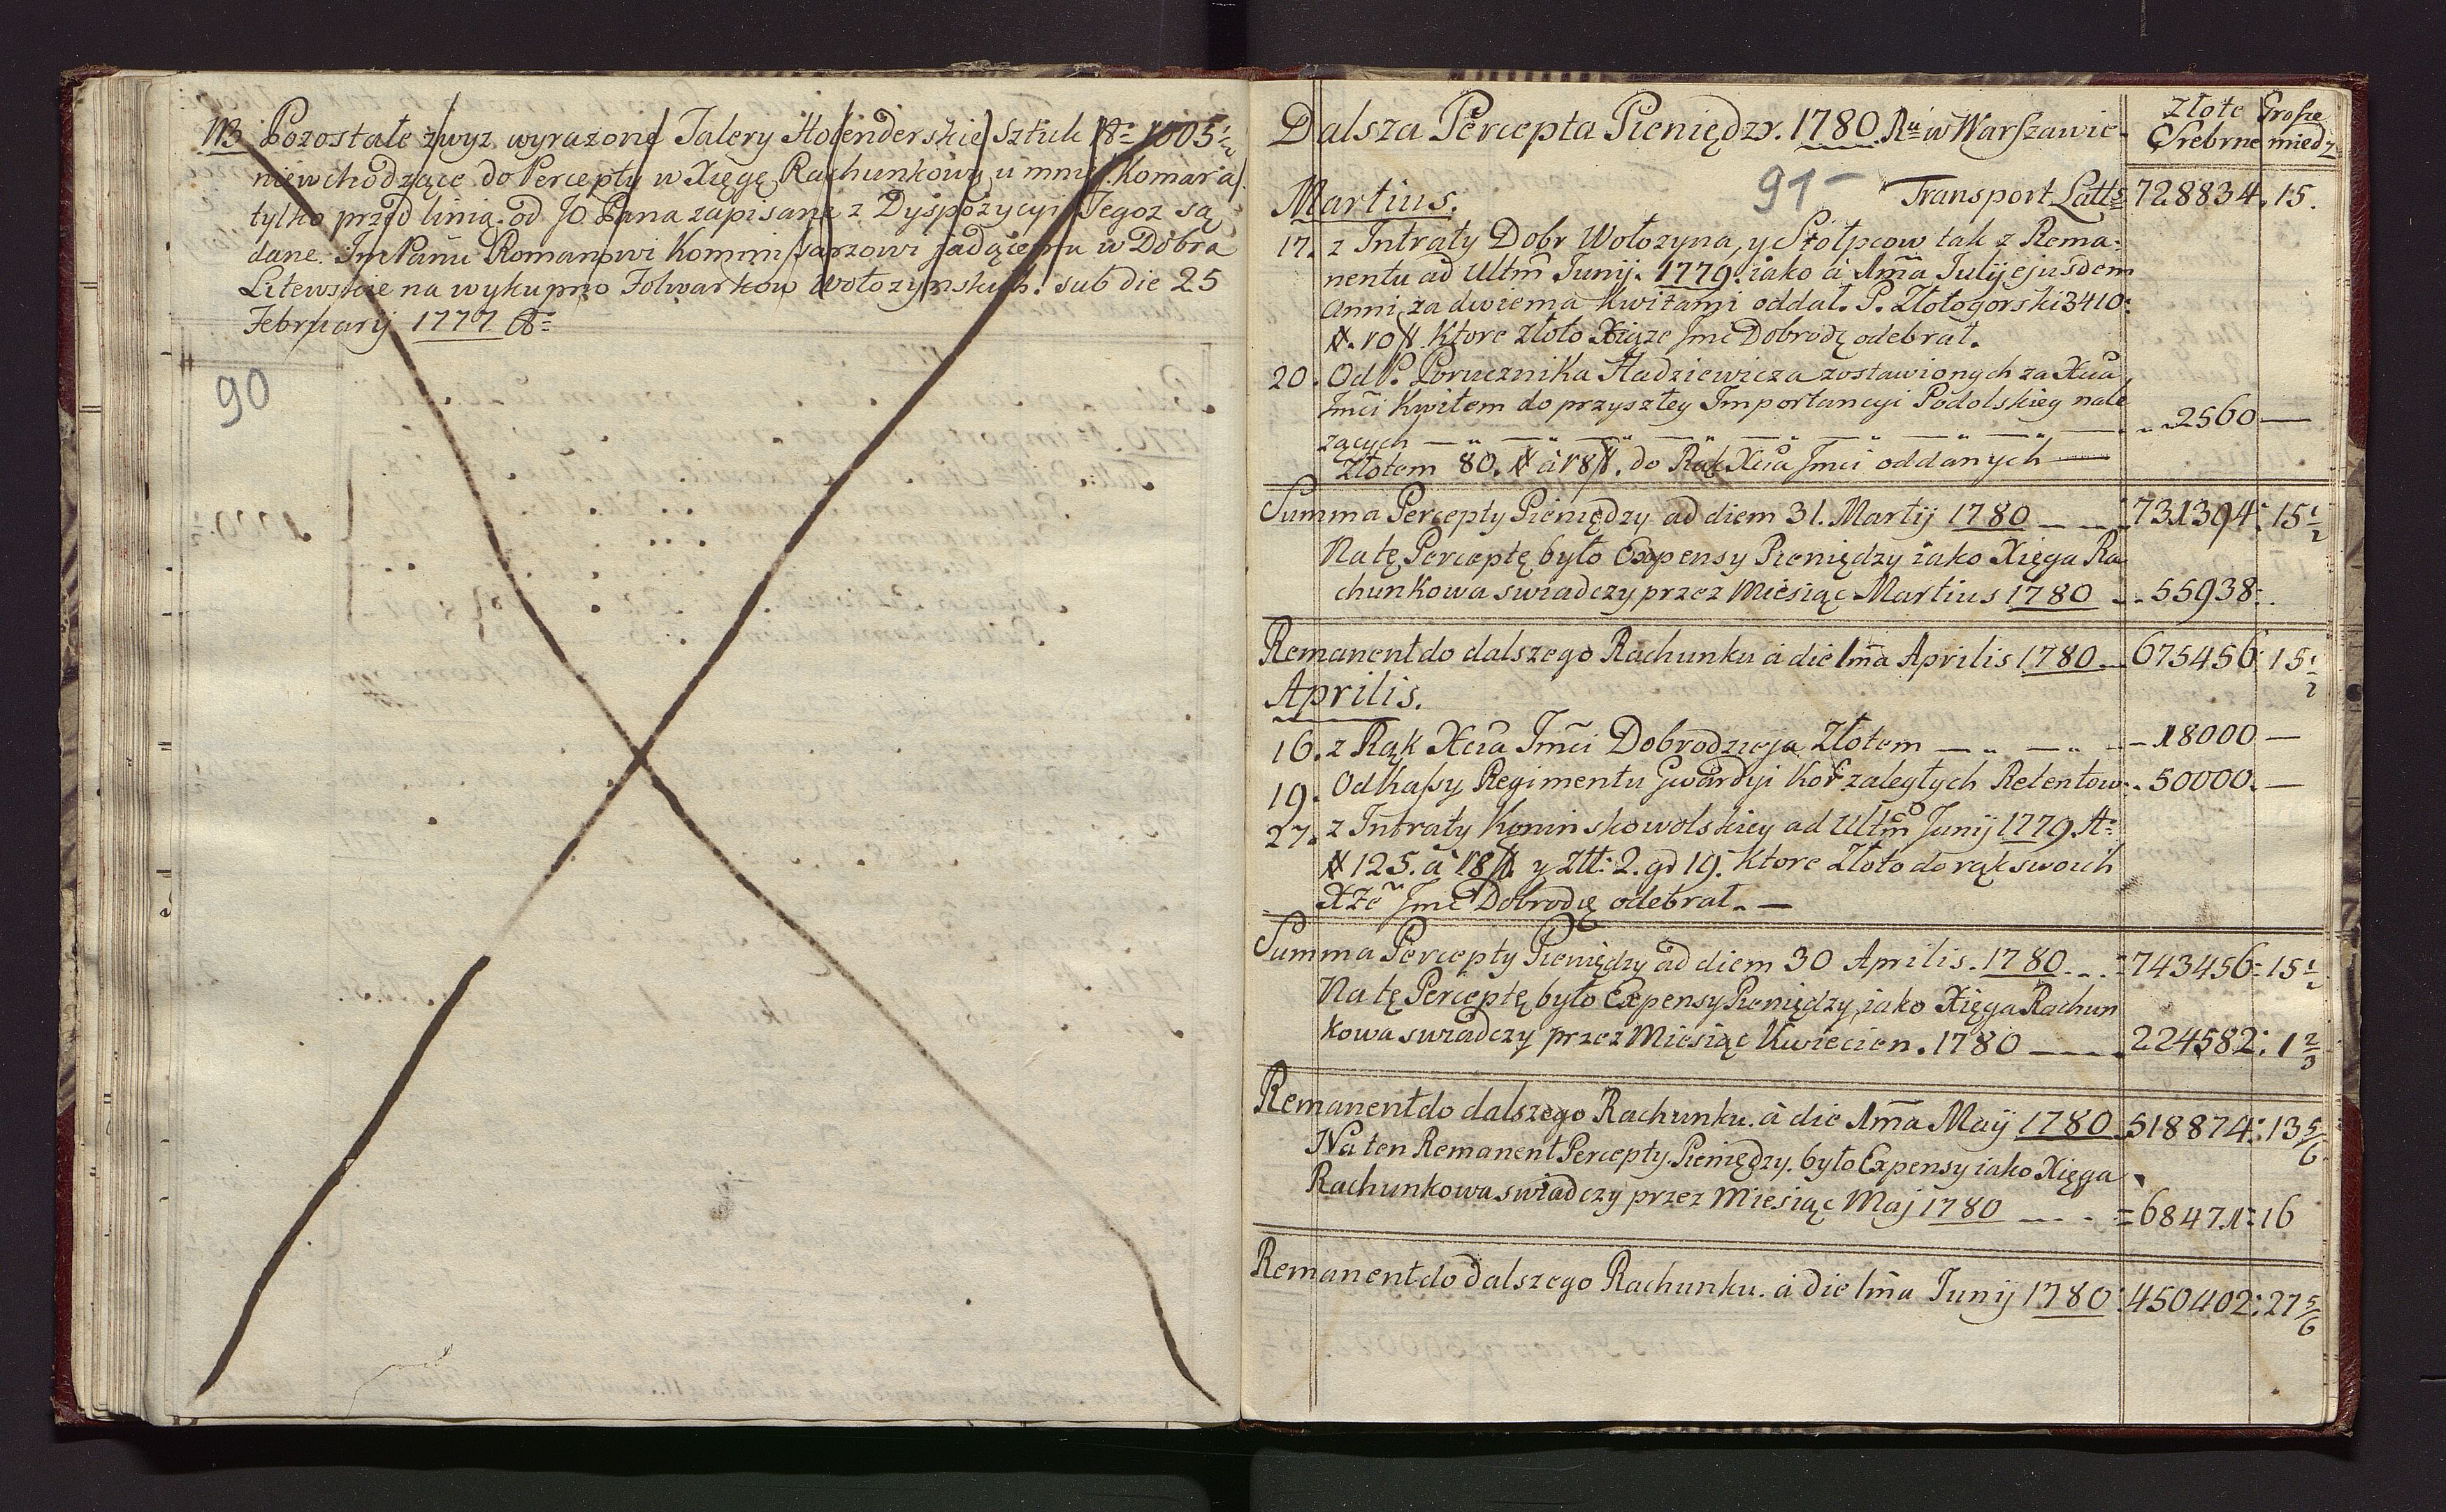 NB Pozostałe zwyz wyrazone Talery Holenderskie Sztuk № 1005½
niewchodzące do Percepty w Xięgę Rachunkową u mnie Komara
tylko przed linią od JO Pana zapisane z Dyspozycyi Tegoz są
dane Im Panu Romanowi Kommissarzowi jadącemu w Dobra
Litewskie na wykupno Folwarkow Wołozynskich. sub die 25
February 1777
90
Dalsza Percepta Pieniędzy. 1780 Ru w Warszawie
Złote Srebrne
Grosze miedz
91
Transport Latts 728834. 15.
Martius.
17. z Intraty Dobr Wołozyna, y Stołpcow tak z Rema-
nentu ad Ultm Junij. 1779. iako a 1ma Julij ejusdem
Anni za dwiema Kwitami oddał. P. Złotogorski 3410:
Ktore złoto Xiąze Jmc Dobrodz odebrał.
20. Od P. Porucznika Hadziewicza zostawionych za Xcia
Jmci Kwitem do przyszłey Importancyi Podolskiey nale
zących 2560 —
Złotem 80. à 18 do Rąk Xcia Jmci oddanych
Summa Percepty Pieniędzy ad diem 31. Martij 1780 731394: 15½
Na tę Perceptę było Expensy Pieniędzy iako Xięga Ra
chunkowa swiadczy przez Miesiąc Martius 1780 55938:
Remanent do dalszego Rachunku à die 1ma Aprilis 1780 675456: 15½
Aprilis.
16. z Rąk Xcia Jmci Dobrodzieja Złotem 18000 —
19. Od Kassy Regimentu Gwardyi Kor zaległych Retentow 50000. —
27. z Intraty Koninskowolskiey ad Ultmo Junij 1779.
125. à 18 y Złt: 2. gr 19. Ktore Złoto do rąk swoich
Xże Jmc Dobrodz odebrał. —
Summa Percepty Pieniędzy ad diem 30 Aprilis. 1780 743456: 15½
Na tę Perceptę było Expensy Pieniędzy, iako Xięga Rachun
kowa swiadczy przez Miesiąc Kwiecien. 1780 224582: 1⅔
Remanent do dalszego Rachunku. à die 1ma Maij 1780 518874: 13⅚
Na ten Remanent Percepty Pieniędzy. było Expensy iako Xięga
Rachunkowa swiadczy przez Miesiąc Maj 1780 68471: 16
Remanent do dalszego Rachunku. à die 1ma Junij 1780 450402: 27⅚